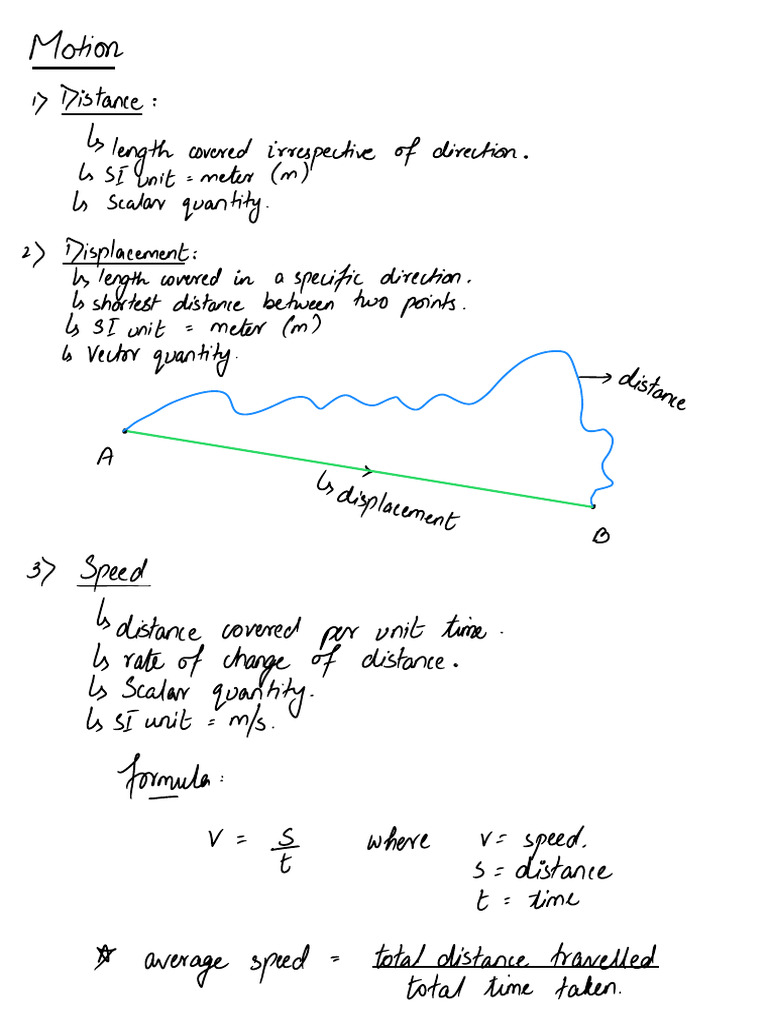 Motion
1) Distance:
↳ length covered irrespective of direction.
↳ SI unit = meter (m)
↳ Scalar quantity.
2) Displacement:
↳ length covered in a specific direction.
↳ shortest distance between two points.
↳ SI unit = meter (m)
↳ Vector quantity.
→ distance
A
↳ displacement
B
3) Speed
↳ distance covered per unit time.
↳ rate of change of distance.
↳ Scalar quantity.
↳ SI unit = m/s.
formula:
v = s/t where v = speed.
s = distance
t = time
☆ average speed = total distance travelled
total time taken.